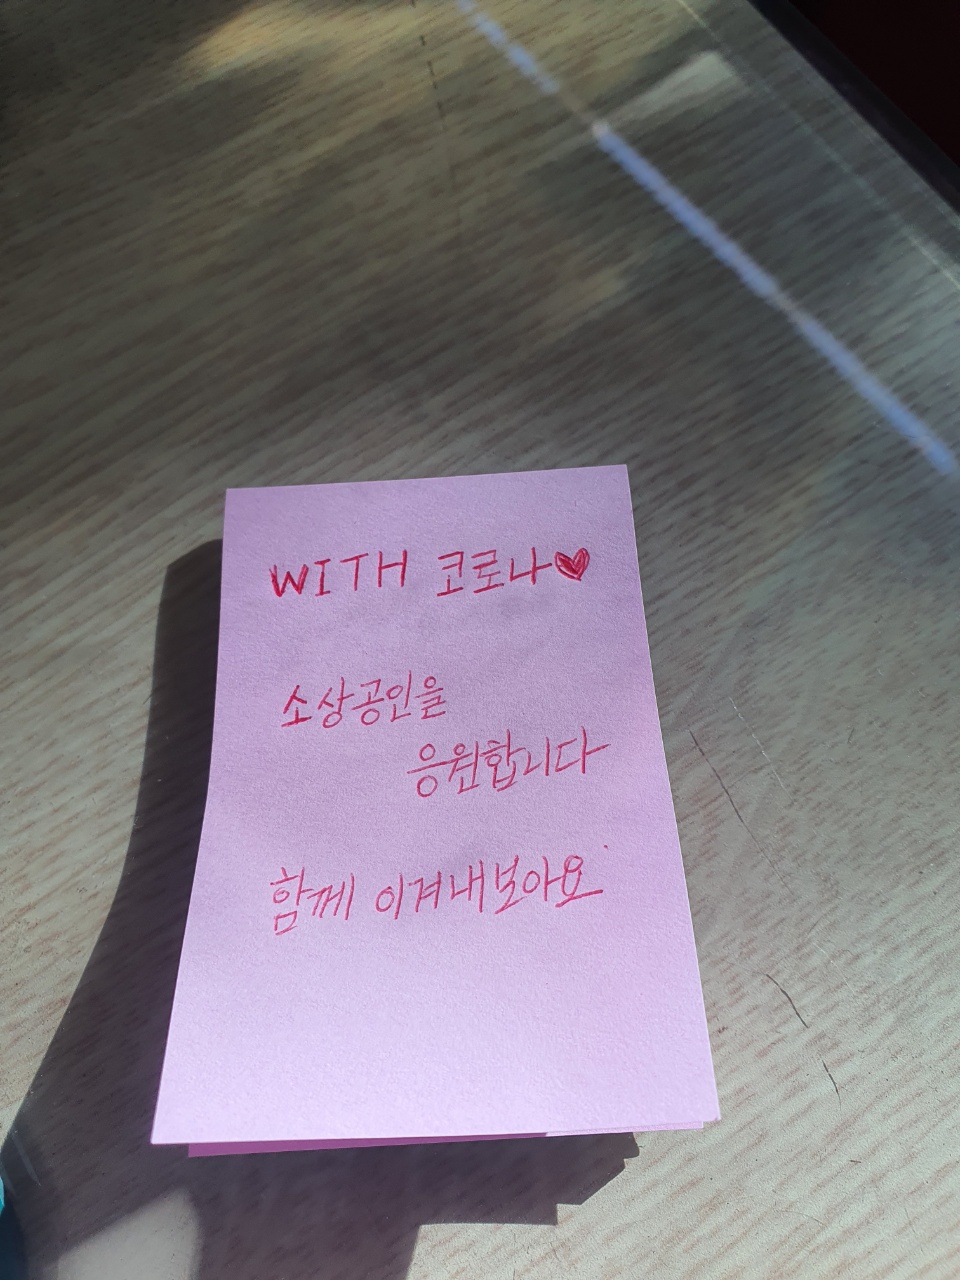 WITH 코로나♥
소상공인을
응원합니다
함께 이겨내보아요